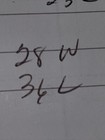 28 W
36 L